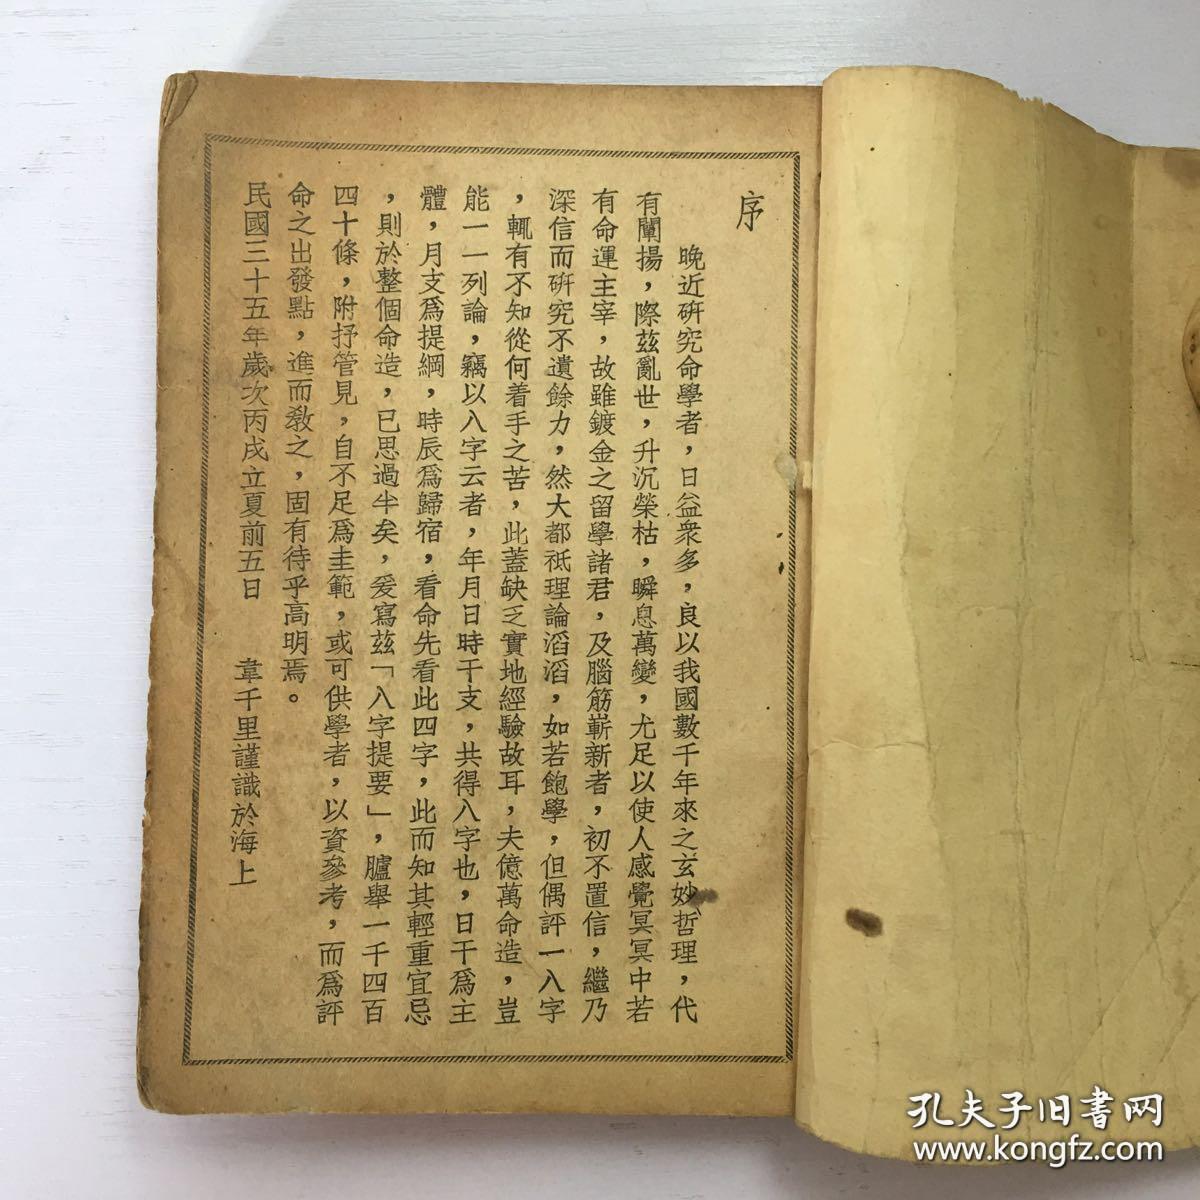 序
晚近研究命學者，日益衆多，良以我國數千年來之玄妙哲理，代
有闡揚，際茲亂世，升沉榮枯，瞬息萬變，尤足以使人感覺冥冥中若
有命運主宰，故雖鍍金之留學諸君，及腦筋嶄新者，初不置信，繼乃
深信而研究不遺餘力，然大都祗理論滔滔，如若飽學，但偶評一八字
，輒有不知從何着手之苦，此蓋缺乏實地經驗故耳，夫億萬命造，豈
能一一列論，竊以八字云者，年月日時干支，共得八字也，日干爲主
體，月支爲提綱，時辰爲歸宿，看命先看此四字，此而知其輕重宜忌
，則於整個命造，已思過半矣，爰寫茲「八字提要」，臚舉一千四百
四十條，附抒管見，自不足爲圭範，或可供學者，以資參考，而爲評
命之出發點，進而教之，固有待乎高明焉。
民國三十五年歲次丙戌立夏前五日　韋千里謹識於海上
孔夫子旧书网
www.kongfz.com